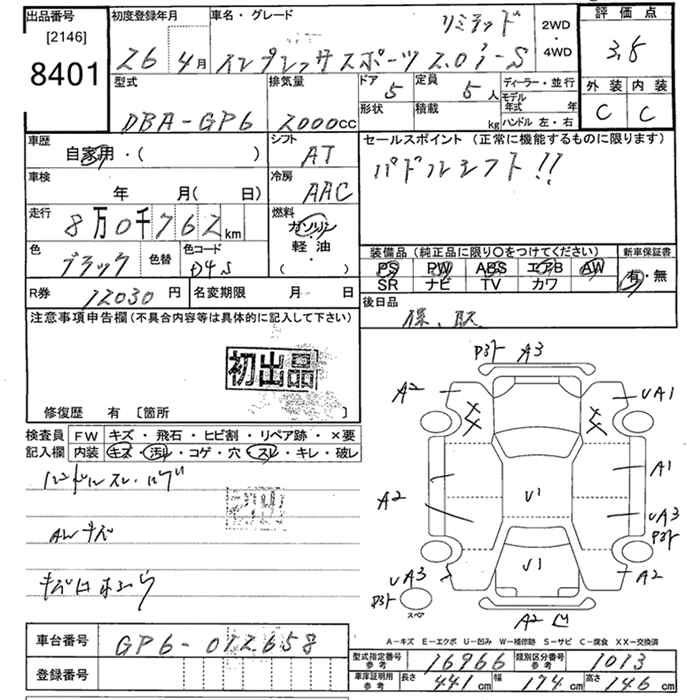 出品番号
[2146]
8401
初度登録年月
26年4月
車名・グレード
リミテッド
インプレッサスポーツ 2.0i-S
2WD
・
4WD
評価点
3.5
外装 内装
C C
型式
DBA-GP6
排気量
2000cc
ドア 5
形状
定員 5人
積載 kg
ディーラー・並行
モデル年式 年
ハンドル 左・右
車歴
自家用・( )
シフト
AT
セールスポイント (正常に機能するものに限ります)
パドルシフト!!
車検
年 月( 日)
冷房
AAC
走行
8万0千762km
燃料
ガソリン
軽油
( )
色
ブラック
色替
色コード
D4S
装備品 (純正品に限り○をつけてください)
PS PW ABS エアB AW
SR ナビ TV カワ
新車保証書
有・無
R券 12030円
名変期限 月 日
後日品
保、取
注意事項申告欄(不具合内容等は具体的に記入して下さい)
初出品
修復歴 有 [箇所 ]
検査員記入欄
FW キズ・飛石・ヒビ割・リペア跡・×要
内装 キズ・汚れ・コゲ・穴・スレ・キレ・破レ
AWキズ
A3
A2
UA1
A1
A2
U1
UA3
U1
UA3
A2
スペア
A2
A-キズ E-エクボ U-凹み W-補修跡 S-サビ C-腐食 XX-交換済
車台番号
GP6-012658
登録番号
型式指定番号 参考
16966
類別区分番号 参考
1013
車庫証明用 参考
長さ 441cm
幅 174cm
高さ 146cm